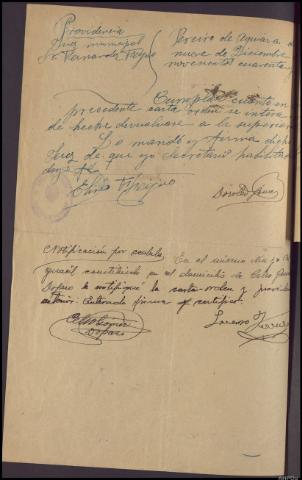 Providencia
Juez municipal
Sr. Fernandez Feijoo
Pereiro de Aguiar a
nueve de Diciembre
novecientos cuarenta
Cumplase cuanto en
precedente carta orden se interesa
de hecho devuelvase a la superioridad
Lo mando y firma dicho
Juez de que yo Secretario habilitado
doy fe
Elisio F Feijoo
Notificación por cedula. En el mismo dia yo
constituido en el domicilio de Celso
Doparo le notifiqué la carta-orden y providencia
anterior. Enterado firma y certifico.
Celso Gomez
Doparo